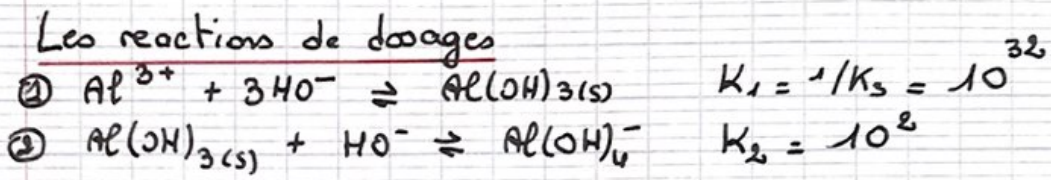 Les reactions de dosages
① Al³⁺ + 3HO⁻ ⇌ Al(OH)₃(s) K₁ = 1/Ks = 10³²
② Al(OH)₃(s) + HO⁻ ⇌ Al(OH)₄⁻ K₂ = 10²